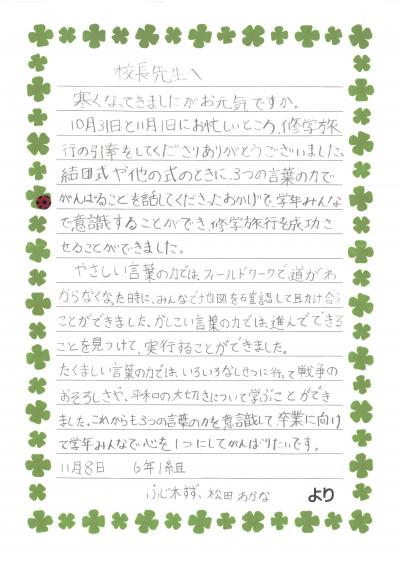 校長先生へ
寒くなってきましたがお元気ですか。
10月31日と11月1日にお忙しいところ、修学旅
行の引率をしてくださりありがとうございました。
結団式や他の式のときに、3つの言葉の力で
がんばることを話してくださったおかげで、学年みんな
で意識することができ、修学旅行を成功さ
せることができました。
やさしい言葉の力では、フィールドワークで道がわ
からなくなった時に、みんなで地図を確認して助け合う
ことができました。かしこい言葉の力では、進んでできる
ことを見つけて、実行することができました。
たくましい言葉の力では、いろいろなしせつに行って戦争の
おそろしさや、平和の大切さについて学ぶことができ
ました。これからも3つの言葉の力を意識して、卒業に向け
て学年みんなで心を1つにしてがんばりたいです。
11月8日 6年1組
ふじ木すず、松田わかな より